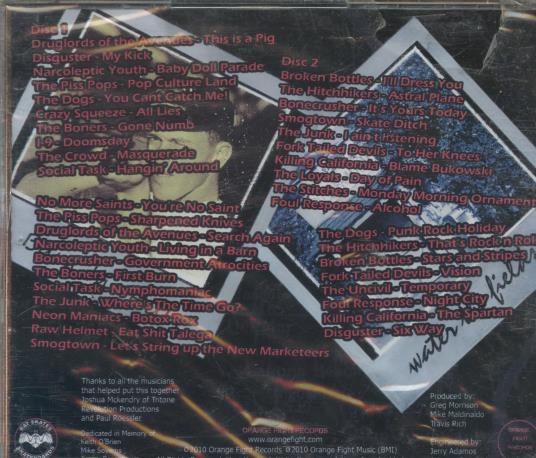 Disc 1
Druglords of the Avenues - This is a Pig
Disguster - My Kick
Narcoleptic Youth - Baby Doll Parade
The Piss Pops - Pop Culture Land
The Dogs - You Cant Catch Me!
Crazy Squeeze - All Lies
The Boners - Gone Numb
I-9 - Doomsday
The Crowd - Masquerade
Social Task - Hangin' Around
No More Saints - You're No Saint
The Piss Pops - Sharpened Knives
Druglords of the Avenues - Search Again
Narcoleptic Youth - Living in a Barn
Bonecrusher - Government Atrocities
The Boners - First Burn
Social Task - Nymphomaniac
The Junk - Where's The Time Go?
Neon Maniacs - Botox Rox
Raw Helmet - Eat Shit Talega
Smogtown - Let's String up the New Marketeers
Disc 2
Broken Bottles - I'll Dress You
The Hitchhikers - Astral Plane
Bonecrusher - It's Yours Today
Smogtown - Skate Ditch
The Junk - I ain't listening
Fork Tailed Devils - To Her Knees
Killing California - Blame Bukowski
The Loyals - Day of Pain
The Stitches - Monday Morning Ornament
Foul Response - Alcohol
The Dogs - Punk Rock Holiday
The Hitchhikers - That's Rock n Roll
Broken Bottles - Stars and Stripes
Fork Tailed Devils - Vision
The Uncivil - Temporary
Foul Response - Night City
Killing California - The Spartan
Disguster - Six Way
Thanks to all the musicians
that helped put this together
Joshua Mckendry of Tritone
Revolution Productions
and Paul Roessler
Dedicated in Memory of
Keith O'Brien
Mike
ORANGE FIGHT RECORDS
www.orangefight.com
©2010 Orange Fight Records, ©2010 Orange Fight Music (BMI)
Produced by:
Greg Morrison
Mike Maldinaldo
Travis Rich
Engineered by:
Jerry Adamos
ORANGE
FIGHT
RECORDS